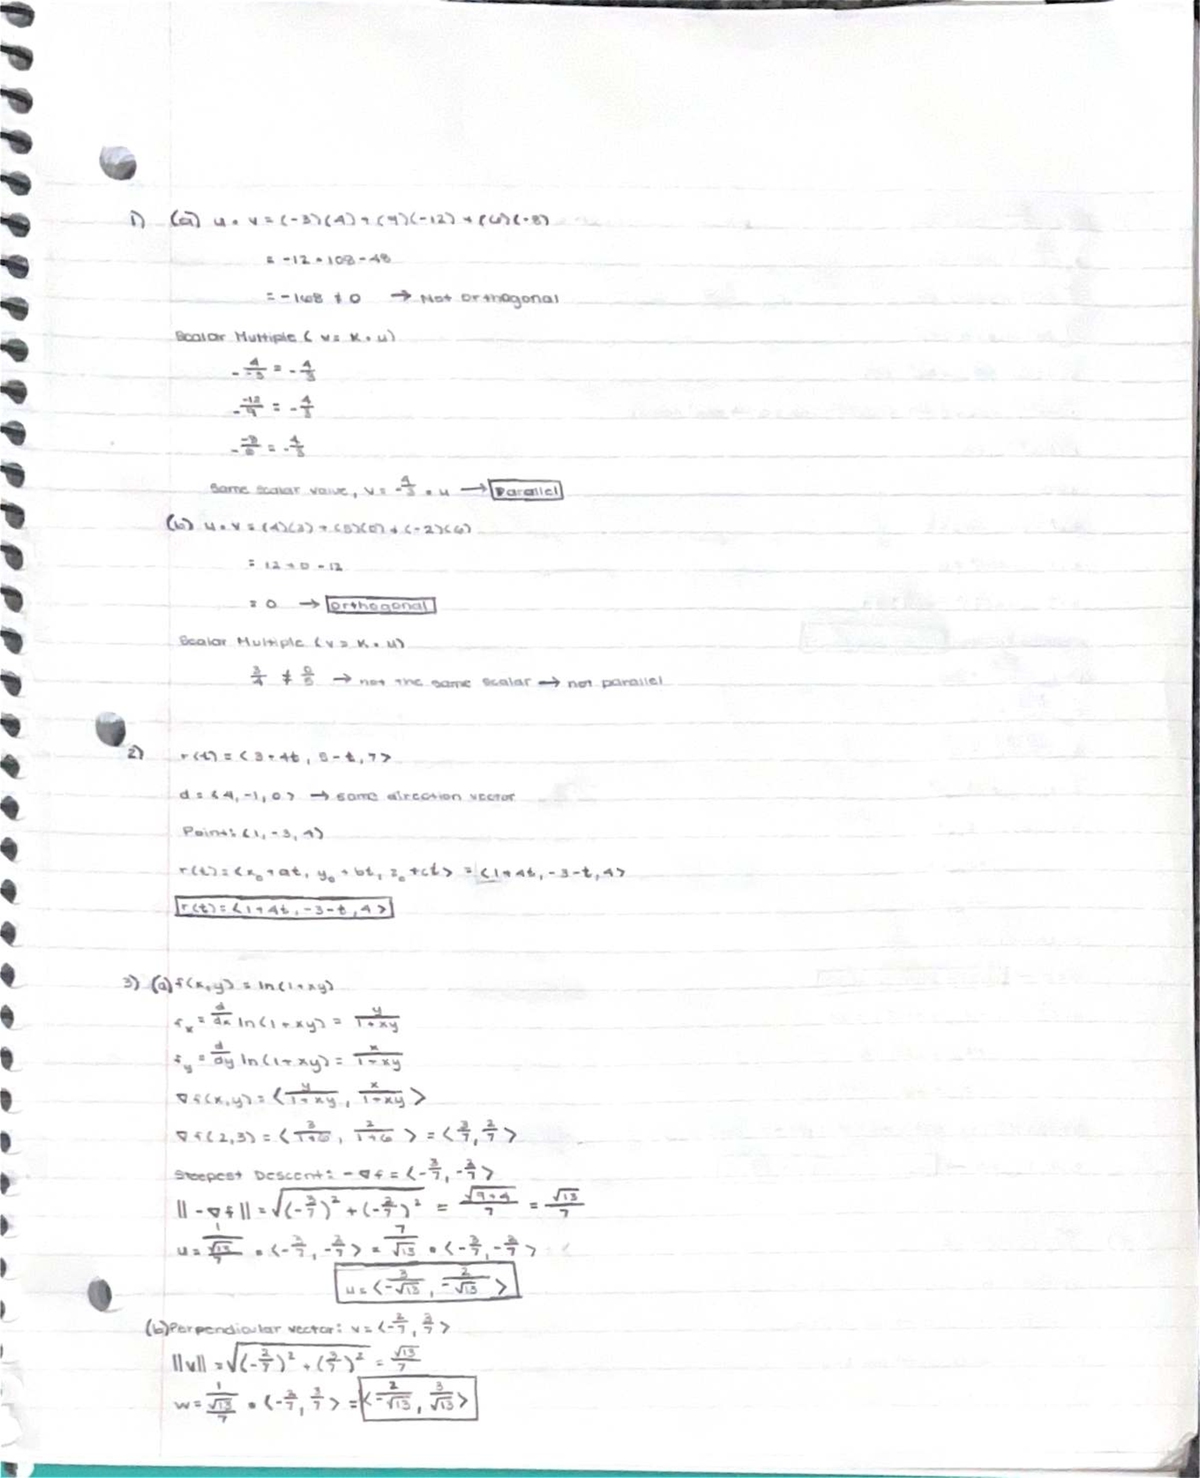 1) (a) u · v = (-3)(4) + (9)(-12) + (6)(-8)
= -12 - 108 - 48
= -168 ≠ 0 → Not Orthogonal
Scalar Multiple ( v = k · u)
- 4/-3 = - 4/3
- -12/9 = - 4/3
- -8/6 = - 4/3
Same scalar value, v = - 4/3 · u → Parallel
(b) u · v = (4)(3) + (5)(0) + (-2)(6)
= 12 + 0 - 12
= 0 → Orthogonal
Scalar Multiple (v = k · u)
3/4 ≠ 0/5 → not the same scalar → not parallel
2) r(t) = <3+4t, 5-t, 7>
d = <4, -1, 0> → same direction vector
Point: (1, -3, 4)
r(t) = <x₀ + at, y₀ + bt, z₀ + ct> = <1+4t, -3-t, 4>
r(t) = <1+4t, -3-t, 4>
3) (a) f(x,y) = ln(1+xy)
fₓ = d/dx ln(1+xy) = y/1+xy
f_y = d/dy ln(1+xy) = x/1+xy
∇f(x,y) = < y/1+xy, x/1+xy >
∇f(2,3) = < 3/1+6, 2/1+6 > = < 3/7, 2/7 >
Steepest Descent: -∇f = < -3/7, -2/7 >
||-∇f|| = √((-3/7)² + (-2/7)²) = √9+4/7 = √13/7
u = 1/(√13/7) · < -3/7, -2/7 > = 7/√13 · < -3/7, -2/7 >
u = < -3/√13, -2/√13 >
(b) Perpendicular vector: v = < -2/7, 3/7 >
||v|| = √((-2/7)² + (3/7)²) = √13/7
w = 1/(√13/7) · < -2/7, 3/7 > = < -2/√13, 3/√13 >